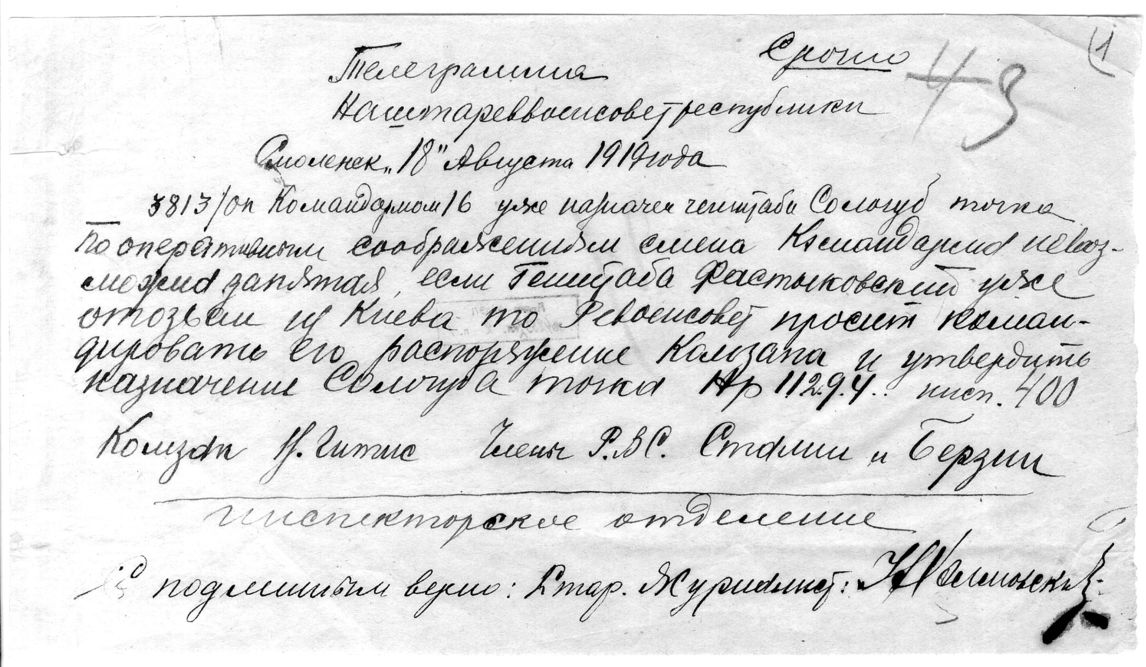 1
Срочно
43
Телеграмма
Наштареввоенсовет республики
Смоленск „18" Августа 1919 года
3813/оп Командармом 16 уже назначен генштаба Сологуб точка
По оперативным соображениям смена Командарма невоз-
можна запятая, если Генштаба Фастыковский уже
отозван из Киева то Реввоенсовет просит коман-
дировать его распоряжение Комзапа и утвердить
назначение Сологуба точка Нр 11294. нисп. 400
Комзап И. Гитис Члены Р.В.С. Сталин и Берзин
Инспекторское отделение
С подлинным верно: Стар. Журналист: